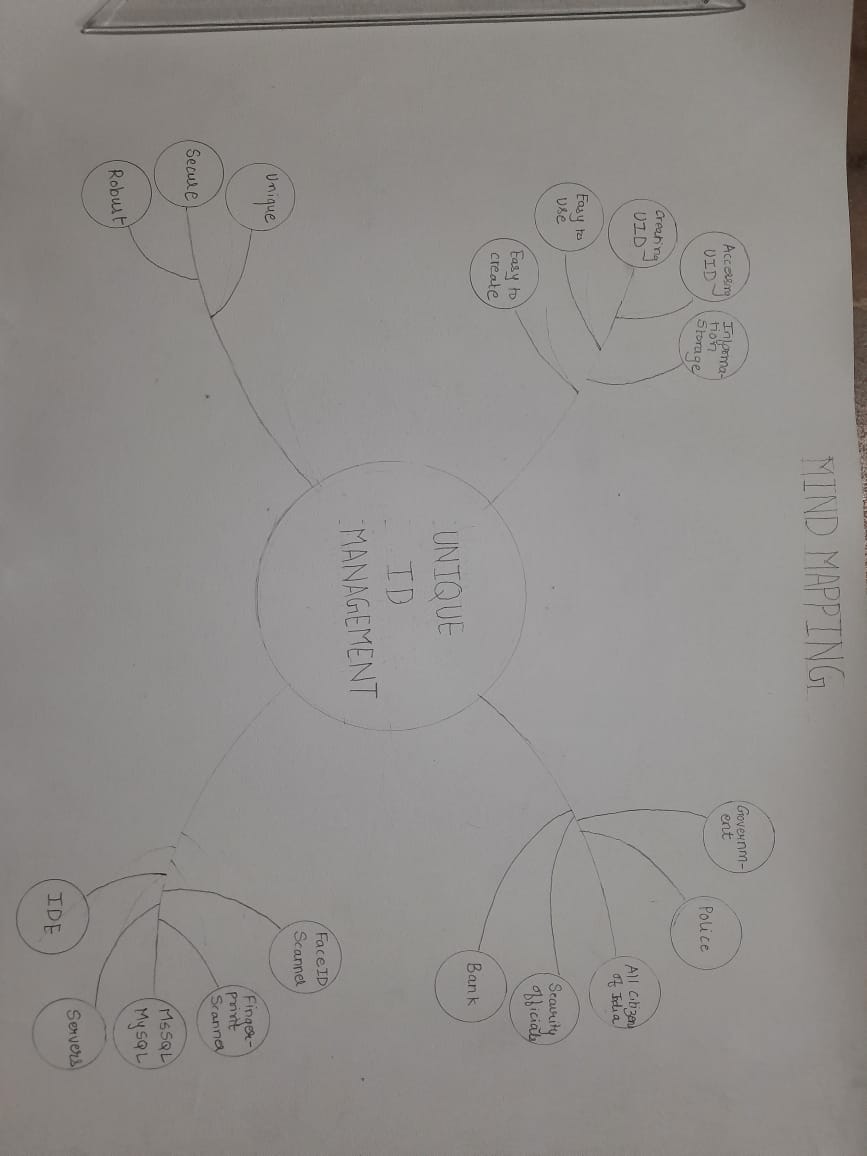 MIND MAPPING
Accessing
UID
Informa-
tion
Storage
Creating
UID
Easy to
Use
Easy to
create
Governm-
ent
Police
All Citizens
of India
Security
Officials
Bank
UNIQUE
ID
MANAGEMENT
Unique
Secure
Robust
FaceID
Scanner
Finger-
print
Scanner
MsSQL
MySQL
Servers
IDE